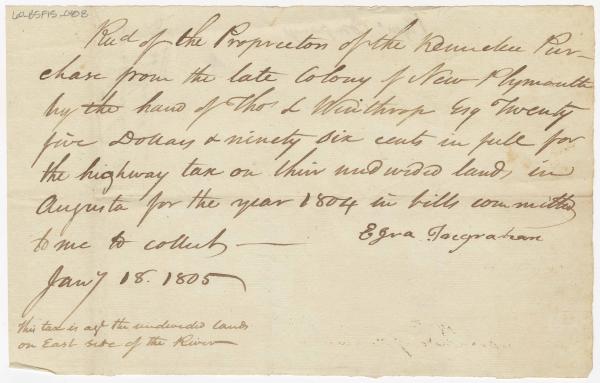 Recd of the Proprietors of the Kennebec Pur-
chase from the late Colony of New Plymouth
by the hand of Thos L Winthrop Esq Twenty
five Dollars & ninety six cents in full for
the highway tax on their undivided lands in
Augusta for the year 1804 in bills committed
to me to collect —
Ezra Ingraham
Jany 18. 1805
this tax is agt the undivided lands
on East side of the River